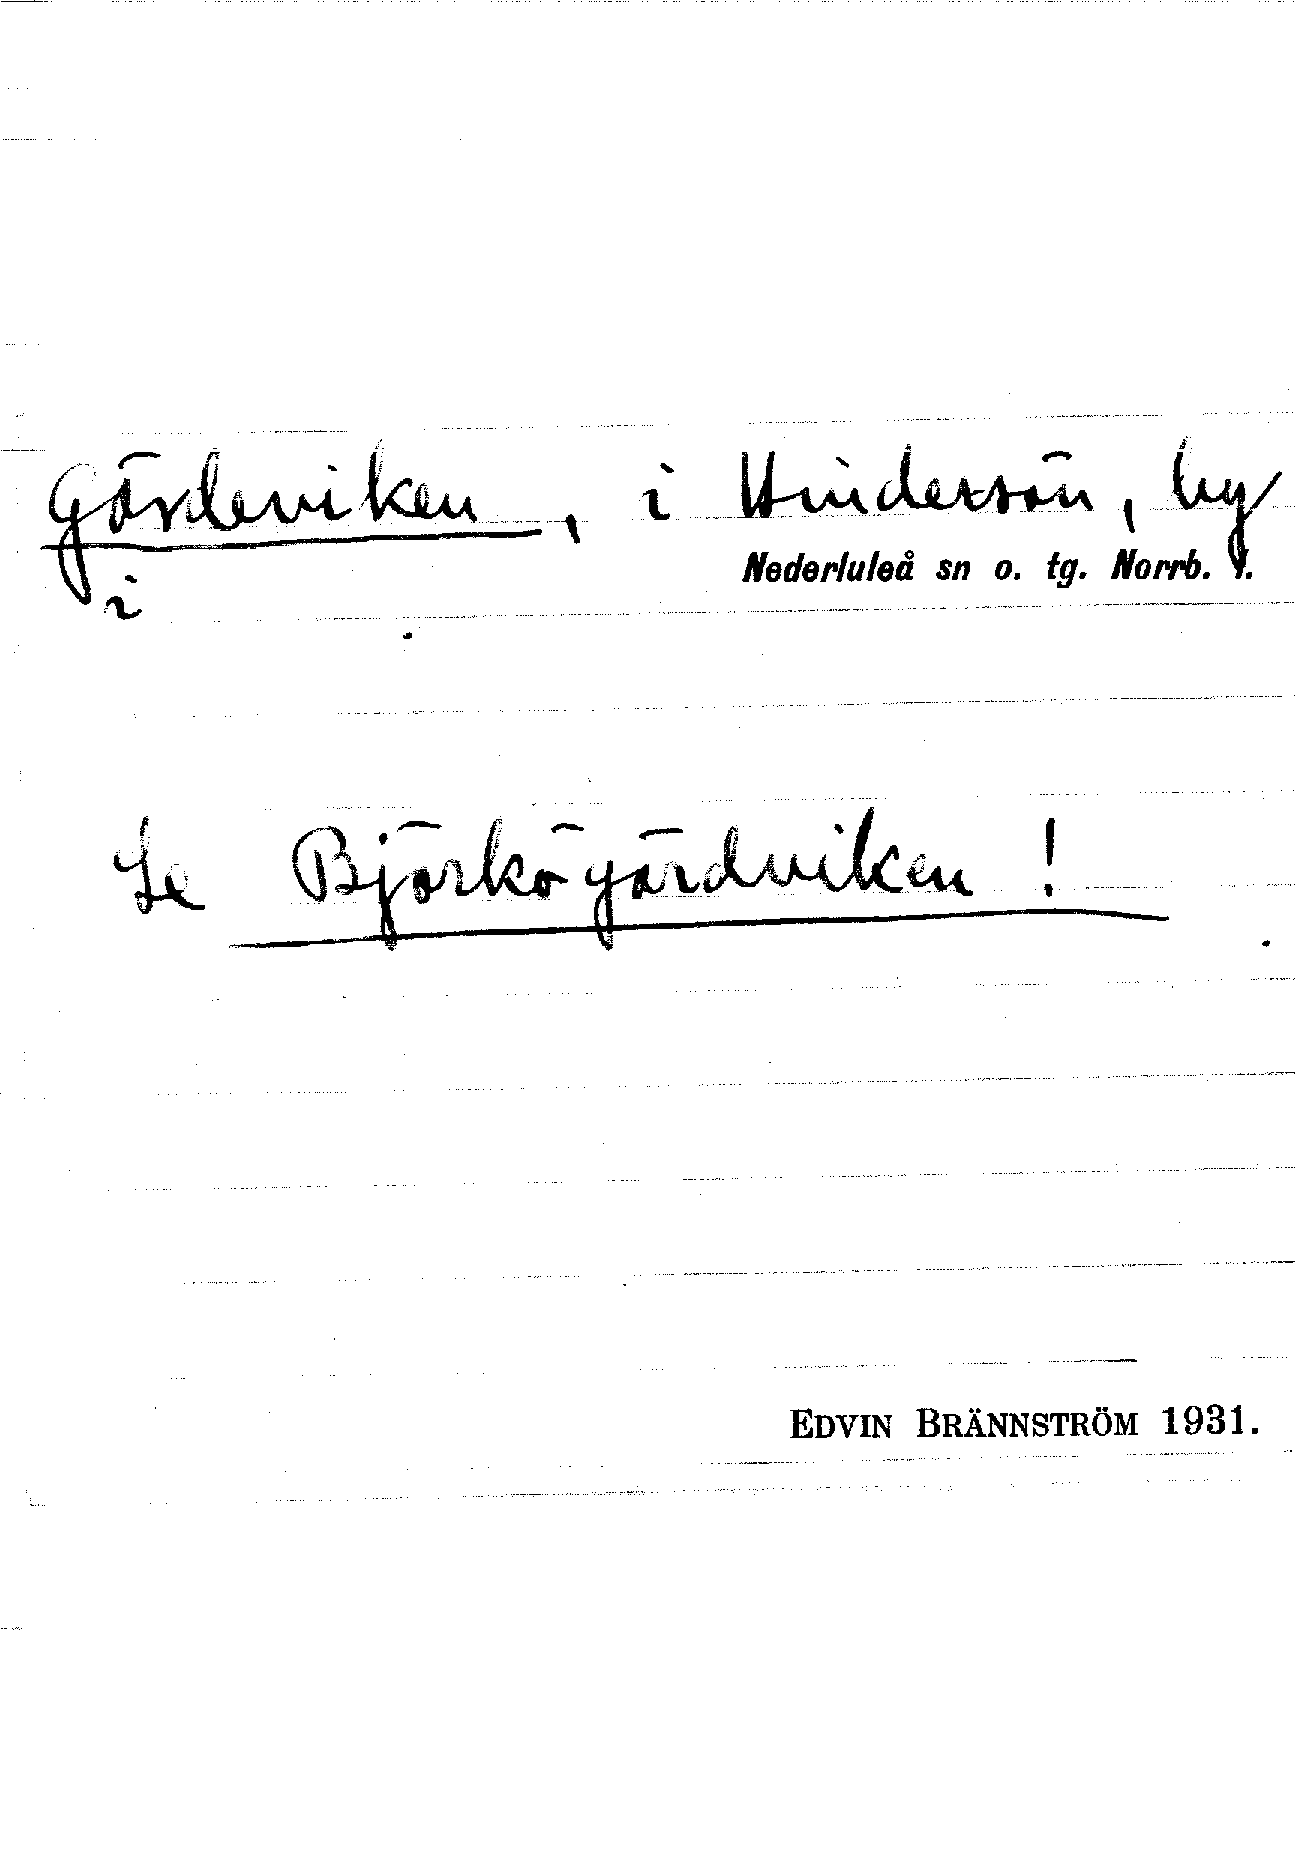 Gärdeviken, i Hindersön, by
Nederluleå sn o. tg. Norrb. l.
i
Se Björkögärdviken!
EDVIN BRÄNNSTRÖM 1931.